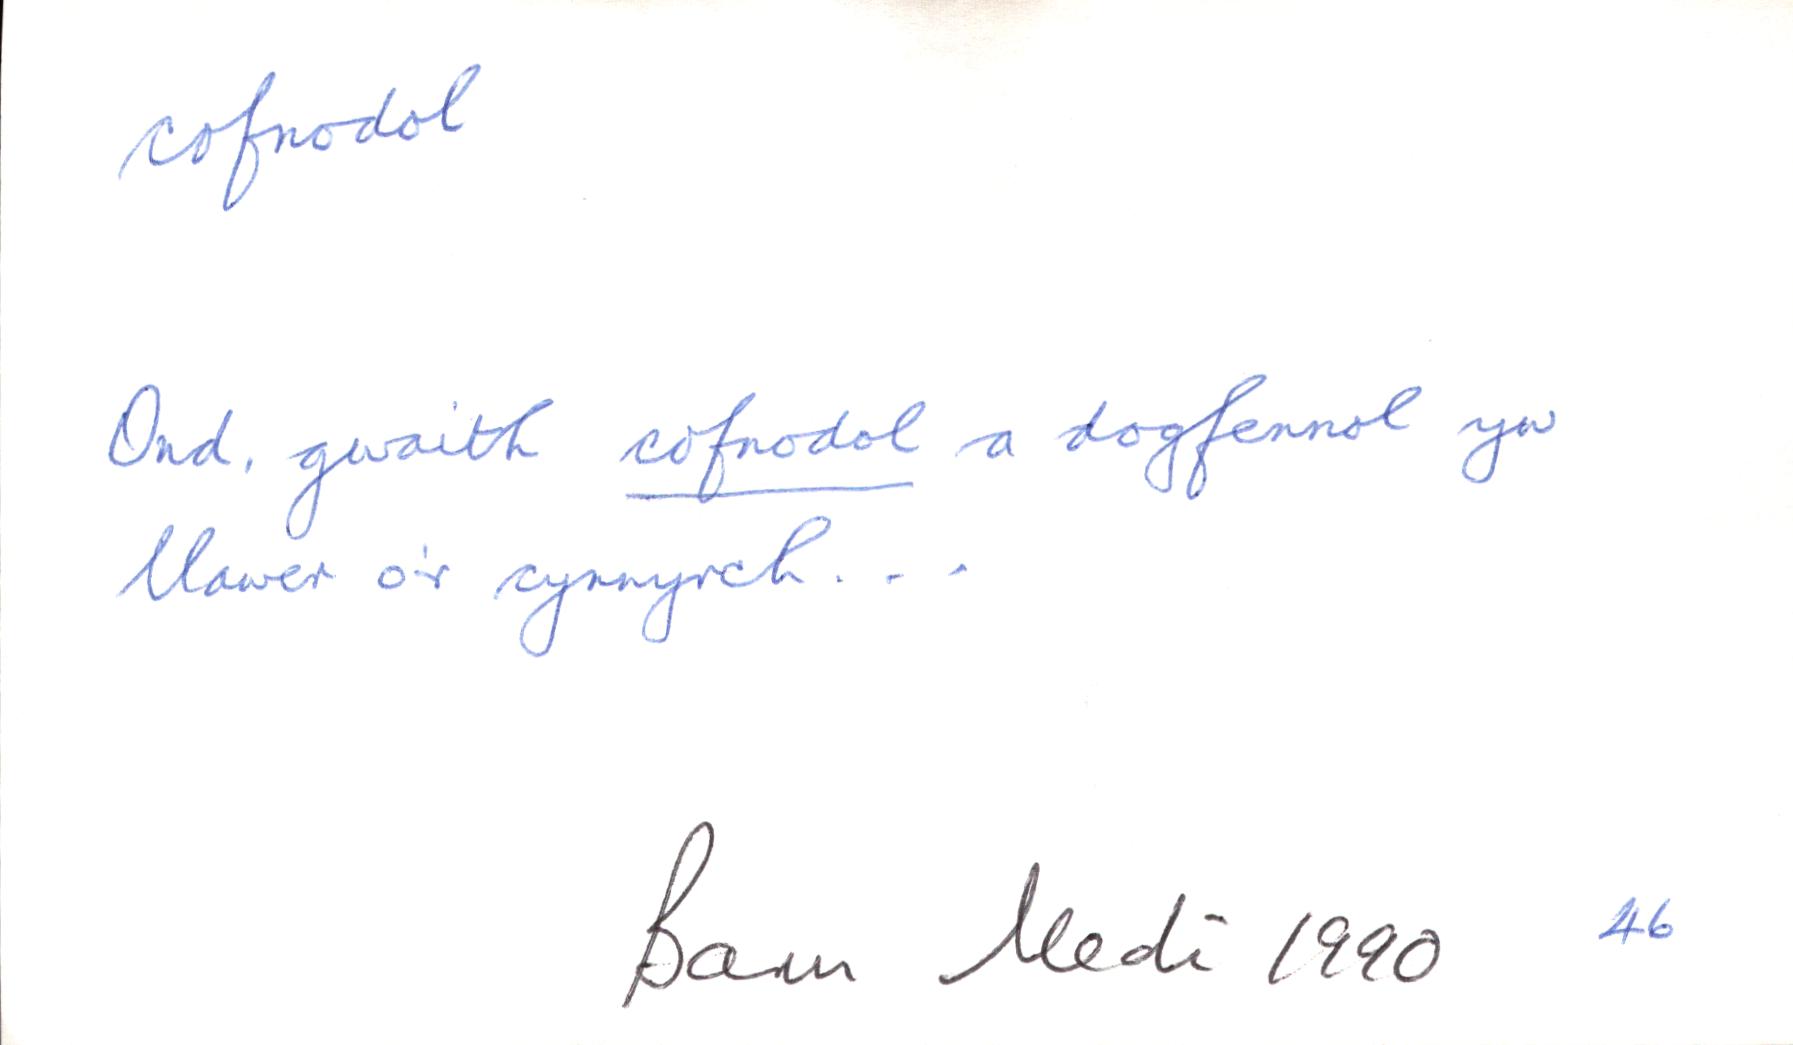 cofnodol
Ond, gwaith cofnodol a dogfennol yw
llawer o'r cynnyrch. . . .
Barn Medi 1990 46